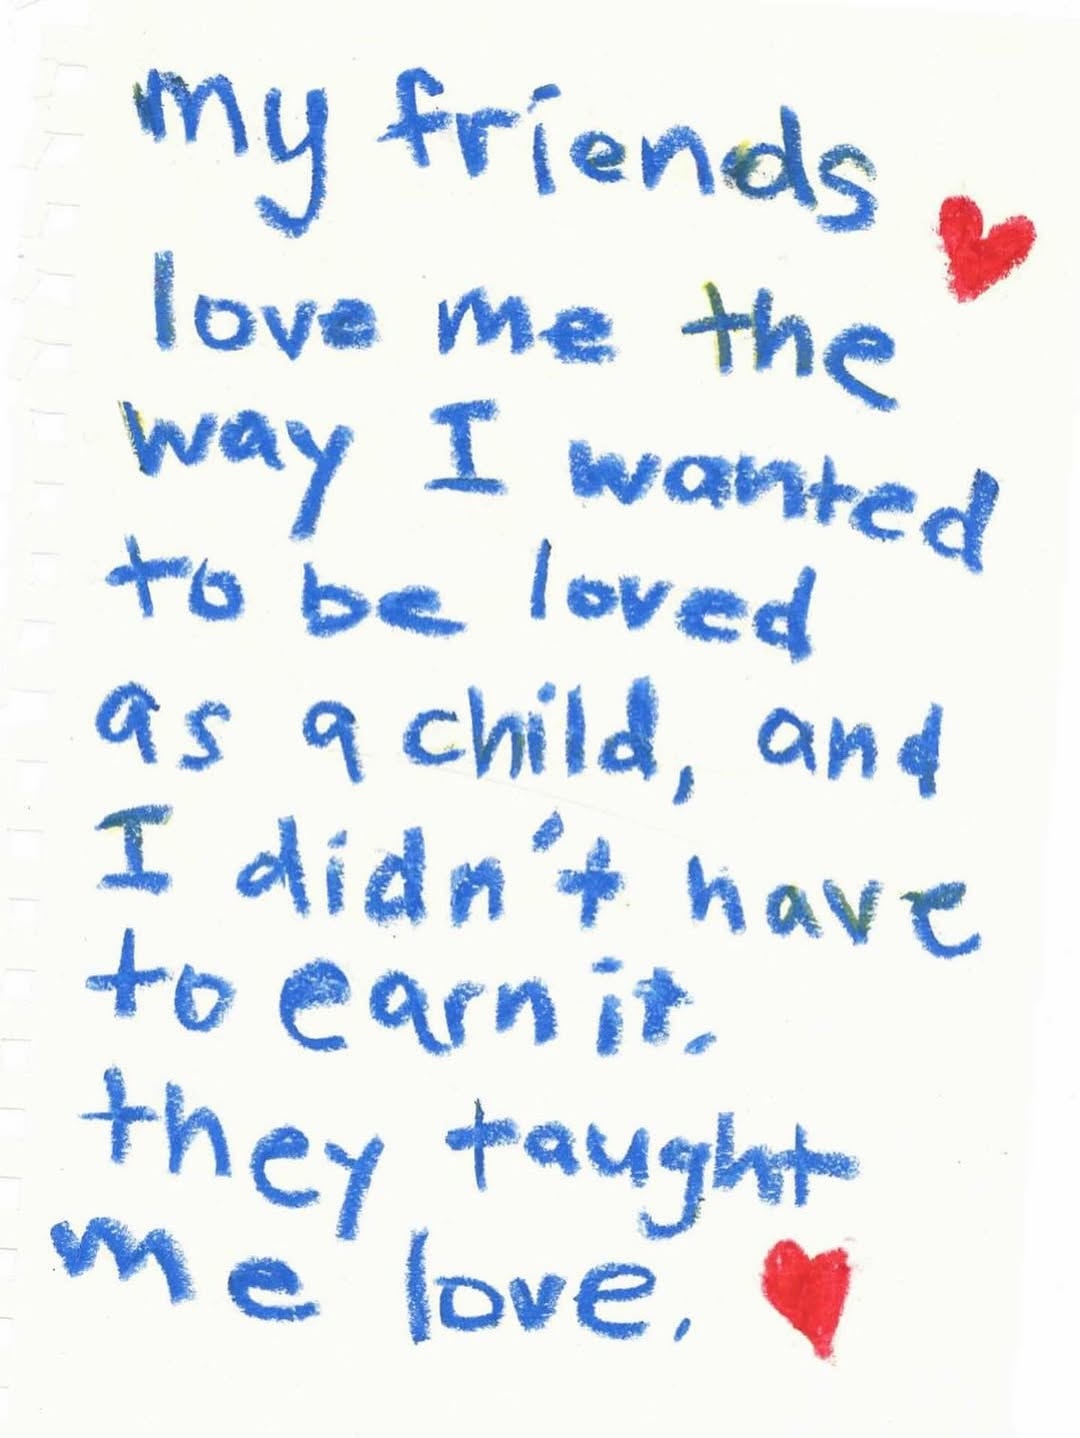 my friends
love me the
way I wanted
to be loved
as a child, and
I didn't have
to earn it.
they taught
me love.